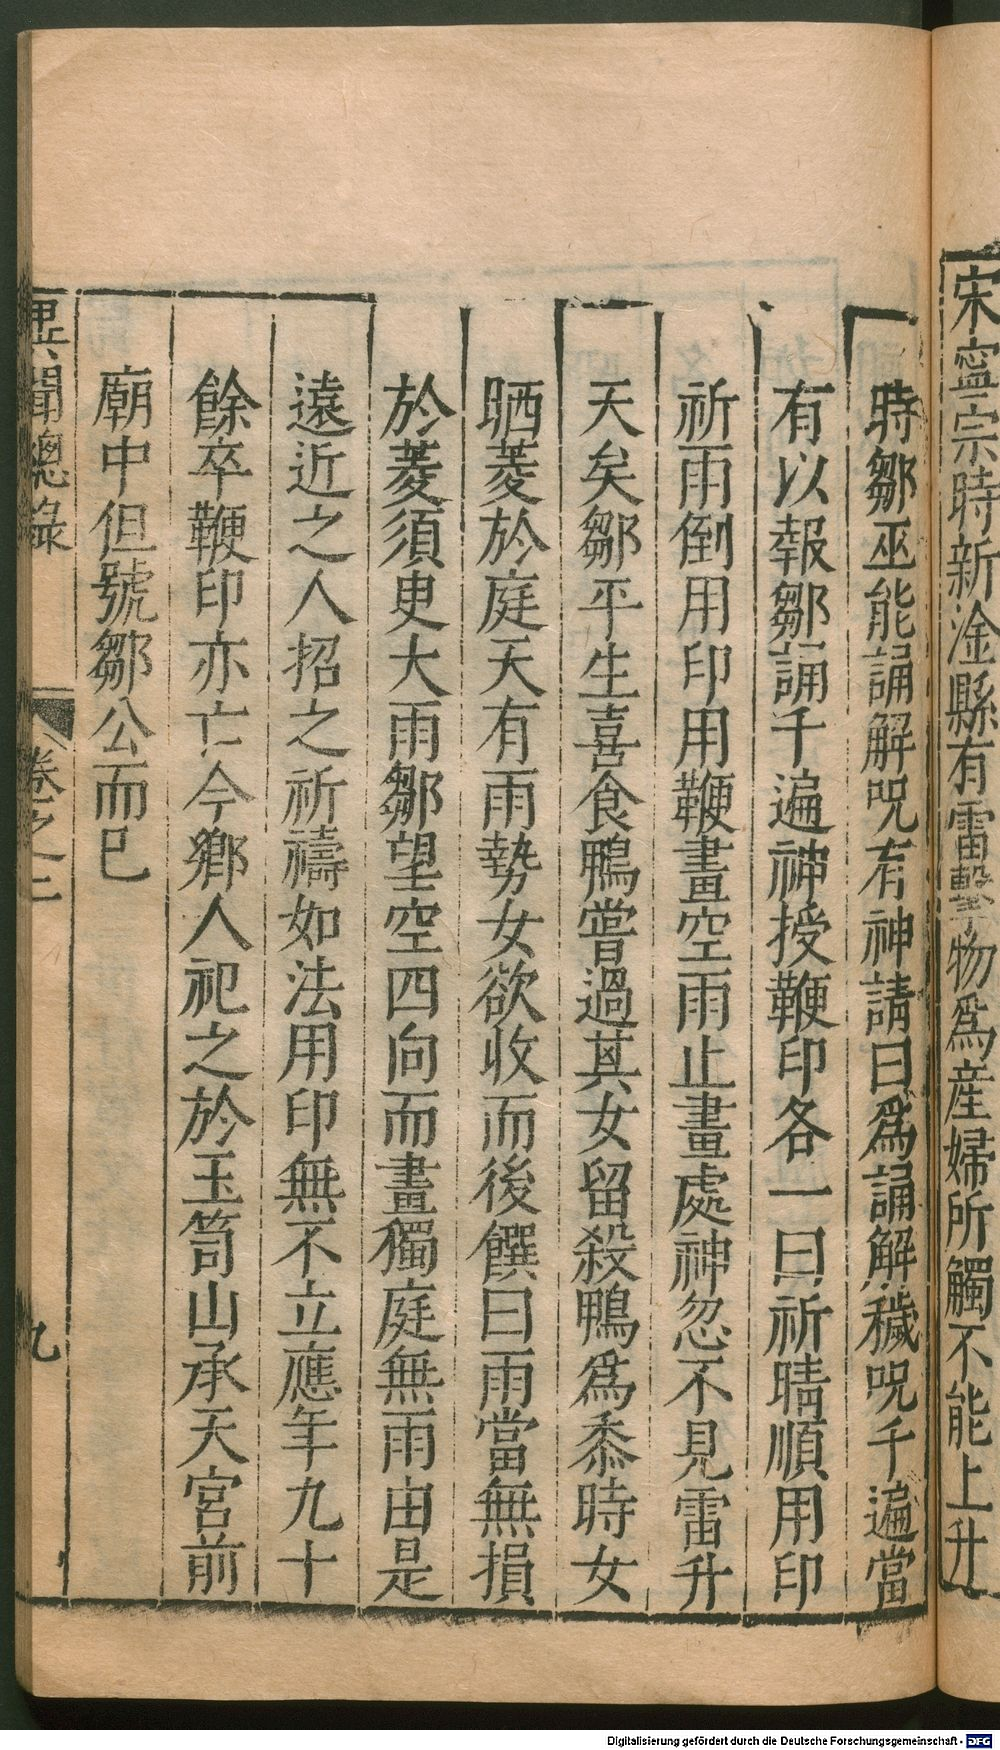 宋寧宗時新淦縣有雷擊物爲産婦所觸不能上升
時鄒巫能誦解呪有神請曰爲誦解穢呪千遍當
有以報鄒誦千遍神授鞭印各一曰祈晴順用印
祈雨倒用印用鞭畫空雨止畫處神忽不見雷升
天矣鄒平生喜食鴨嘗過其女留殺鴨爲黍時女
晒菱於庭天有雨勢女欲收而後饌曰雨當無損
於菱須臾大雨鄒望空四向而畫獨庭無雨由是
遠近之人招之祈禱如法用印無不立應年九十
餘卒鞭印亦亡今鄉人祀之於玉笥山承天宮前
廟中但號鄒公而已
異聞總錄 卷之二 九
Digitalisierung gefördert durch die Deutsche Forschungsgemeinschaft - DFG